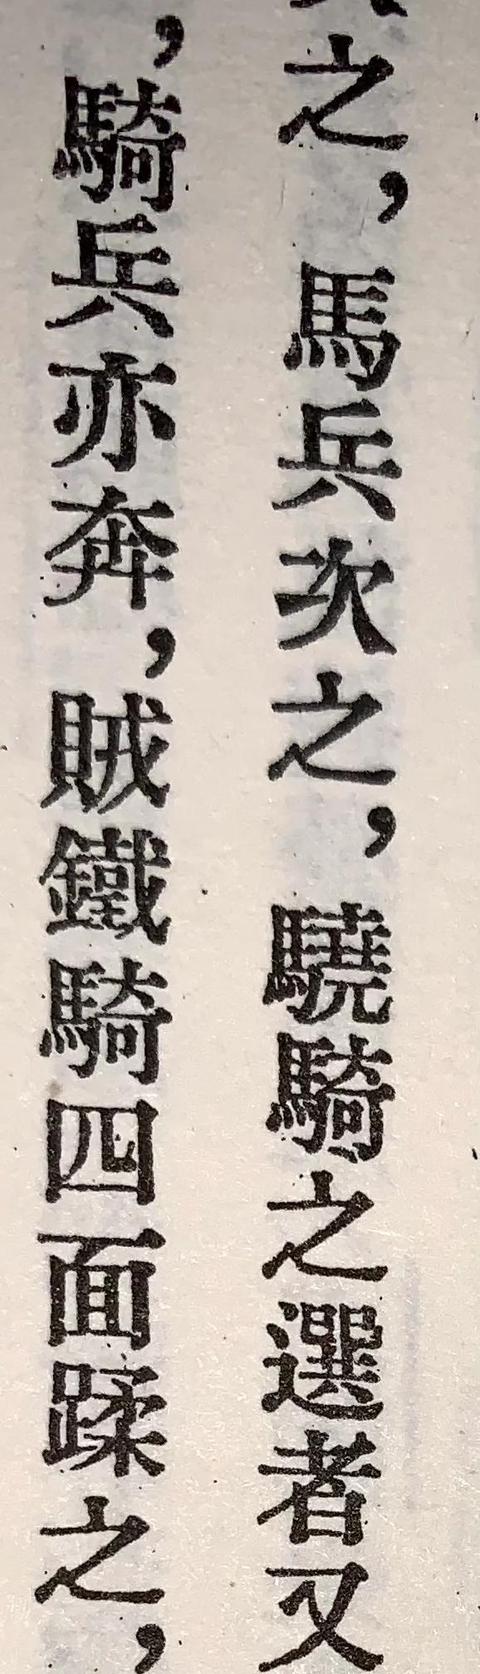 之，馬兵次之，驍騎之選者又
，騎兵亦奔，賊鐵騎四面蹂之，